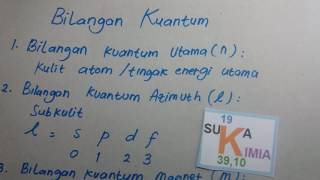 Bilangan Kuantum
1. Bilangan kuantum Utama (n):
Kulit atom/tingak energi utama
2. Bilangan kuantum Azimuth (l):
Subkulit
l = s p d f
0 1 2 3
3. Bilangan kuantum Magnet (m):
19
SUKA
KIMIA
39,10